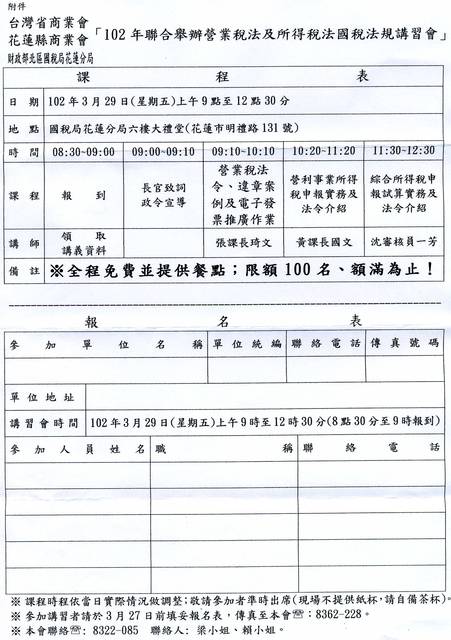 附件
台灣省商業會
花蓮縣商業會「102年聯合舉辦營業稅法及所得稅法國稅法規講習會」
財政部北區國稅局花蓮分局
課 程 表
日 期 102年3月29日(星期五)上午9點至12點30分
地 點 國稅局花蓮分局六樓大禮堂(花蓮市明禮路131號)
時 間 08:30~09:00 09:00~09:10 09:10~10:10 10:20~11:20 11:30~12:30
課 程 報 到 長官致詞 政令宣導 營業稅法令、違章案例及電子發票推廣作業 營利事業所得稅申報實務及法令介紹 綜合所得稅申報試算實務及法令介紹
講 師 領 取 講義資料 張課長琦文 黃課長國文 沈審核員一芳
備 註 ※全程免費並提供餐點;限額100名、額滿為止!
報 名 表
參 加 單 位 名 稱 單 位 統 編 聯 絡 電 話 傳 真 號 碼
單 位 地 址
講習會時間 102年3月29日(星期五)上午9時至12時30分(8點30分至9時報到)
參 加 人 員 姓 名 職 稱 聯 絡 電 話
※ 課程時程依當日實際情況做調整;敬請參加者準時出席(現場不提供紙杯,請自備茶杯)。
※ 參加講習者請於3月27日前填妥報名表,傳真至本會☏:8362-228。
※ 本會聯絡☏:8322-085 聯絡人:梁小姐、賴小姐。